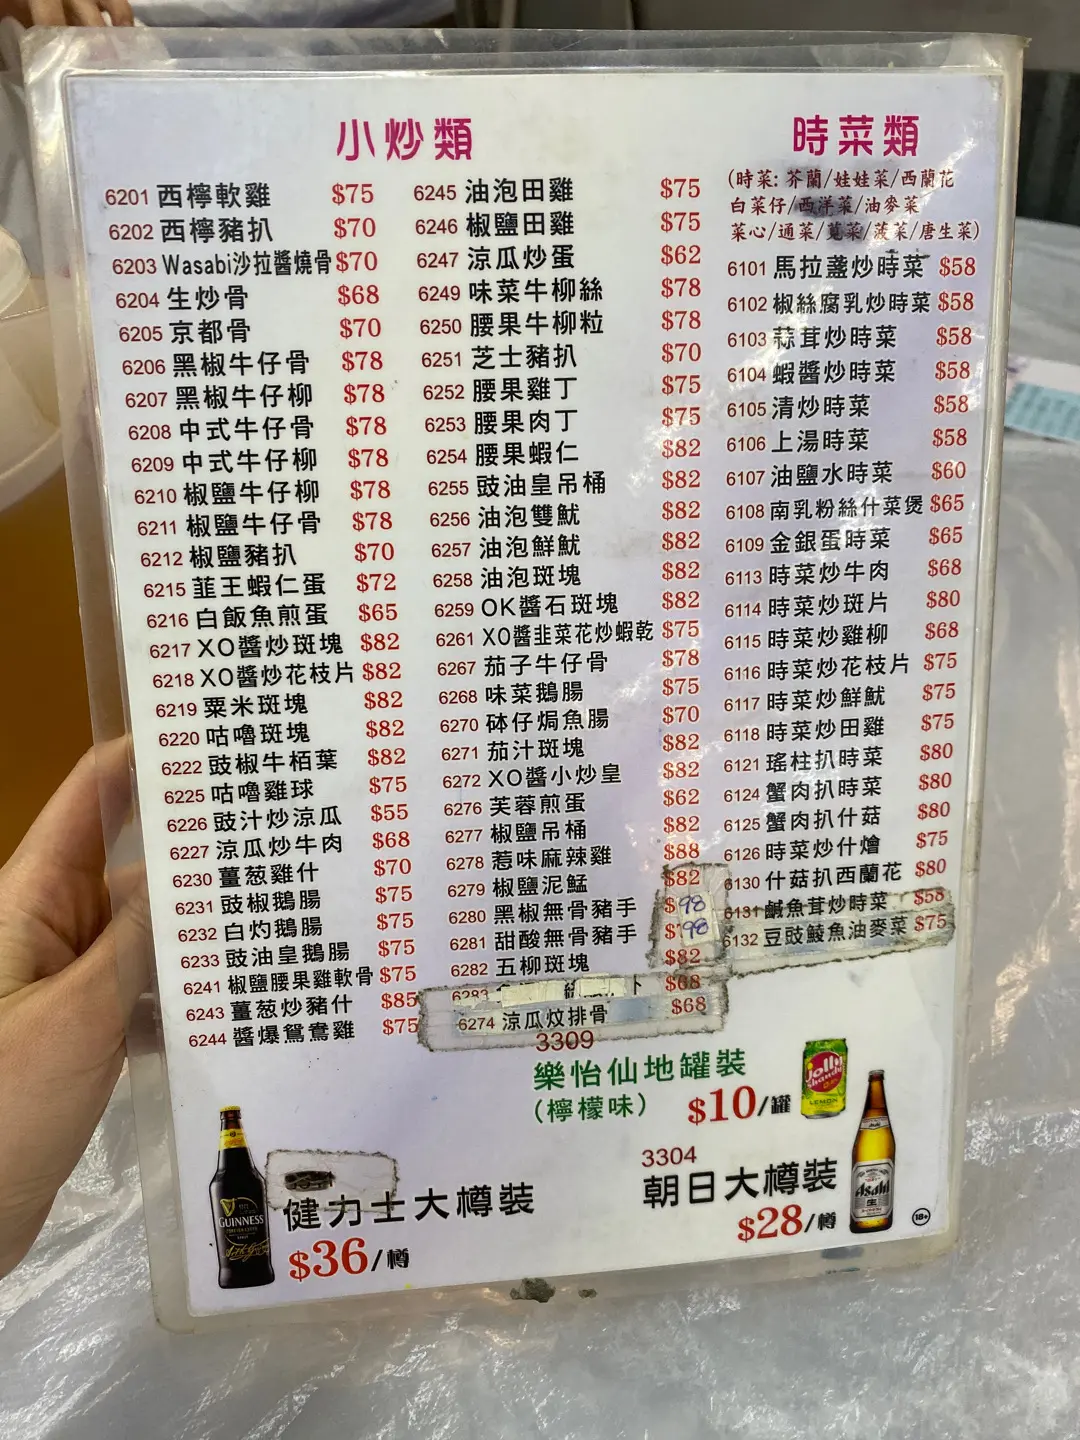 小炒類
6201 西檸軟雞 $75
6202 西檸豬扒 $70
6203 Wasabi沙拉醬燒骨 $70
6204 生炒骨 $68
6205 京都骨 $70
6206 黑椒牛仔骨 $78
6207 黑椒牛仔柳 $78
6208 中式牛仔骨 $78
6209 中式牛仔柳 $78
6210 椒鹽牛仔柳 $78
6211 椒鹽牛仔骨 $78
6212 椒鹽豬扒 $70
6215 韮王蝦仁蛋 $72
6216 白飯魚煎蛋 $65
6217 XO醬炒斑塊 $82
6218 XO醬炒花枝片 $82
6219 粟米斑塊 $82
6220 咕嚕斑塊 $82
6222 豉椒牛栢葉 $82
6225 咕嚕雞球 $75
6226 豉汁炒涼瓜 $55
6227 涼瓜炒牛肉 $68
6230 薑葱雞什 $70
6231 豉椒鵝腸 $75
6232 白灼鵝腸 $75
6233 豉油皇鵝腸 $75
6241 椒鹽腰果雞軟骨 $75
6243 薑葱炒豬什 $85
6244 醬爆鴛鴦雞 $75
6245 油泡田雞 $75
6246 椒鹽田雞 $75
6247 涼瓜炒蛋 $62
6249 味菜牛柳絲 $78
6250 腰果牛柳粒 $78
6251 芝士豬扒 $70
6252 腰果雞丁 $75
6253 腰果肉丁 $75
6254 腰果蝦仁 $82
6255 豉油皇吊桶 $82
6256 油泡雙魷 $82
6257 油泡鮮魷 $82
6258 油泡斑塊 $82
6259 OK醬石斑塊 $82
6261 XO醬韭菜花炒蝦乾 $75
6267 茄子牛仔骨 $78
6268 味菜鵝腸 $75
6270 砵仔焗魚腸 $70
6271 茄汁斑塊 $82
6272 XO醬小炒皇 $82
6276 芙蓉煎蛋 $62
6277 椒鹽吊桶 $82
6278 惹味麻辣雞 $88
6279 椒鹽泥鯭 $82
6280 黑椒無骨豬手 $98
6281 甜酸無骨豬手 $98
6282 五柳斑塊 $82
6283 $68
6274 涼瓜炆排骨 $68
時菜類
(時菜: 芥蘭/娃娃菜/西蘭花
白菜仔/西洋菜/油麥菜
菜心/通菜/莧菜/菠菜/唐生菜)
6101 馬拉盞炒時菜 $58
6102 椒絲腐乳炒時菜 $58
6103 蒜茸炒時菜 $58
6104 蝦醬炒時菜 $58
6105 清炒時菜 $58
6106 上湯時菜 $58
6107 油鹽水時菜 $60
6108 南乳粉絲什菜煲 $65
6109 金銀蛋時菜 $65
6113 時菜炒牛肉 $68
6114 時菜炒斑片 $80
6115 時菜炒雞柳 $68
6116 時菜炒花枝片 $75
6117 時菜炒鮮魷 $75
6118 時菜炒田雞 $75
6121 瑤柱扒時菜 $80
6124 蟹肉扒時菜 $80
6125 蟹肉扒什菇 $80
6126 時菜炒什燴 $75
6130 什菇扒西蘭花 $80
6131 鹹魚茸炒時菜 $58
6132 豆豉鯪魚油麥菜 $75
3309
樂怡仙地罐裝
(檸檬味) $10/罐
jolly
shandy
LEMON
GUINNESS
健力士大樽裝
$36/樽
3304
朝日大樽裝
$28/樽
Asahi
生
18+